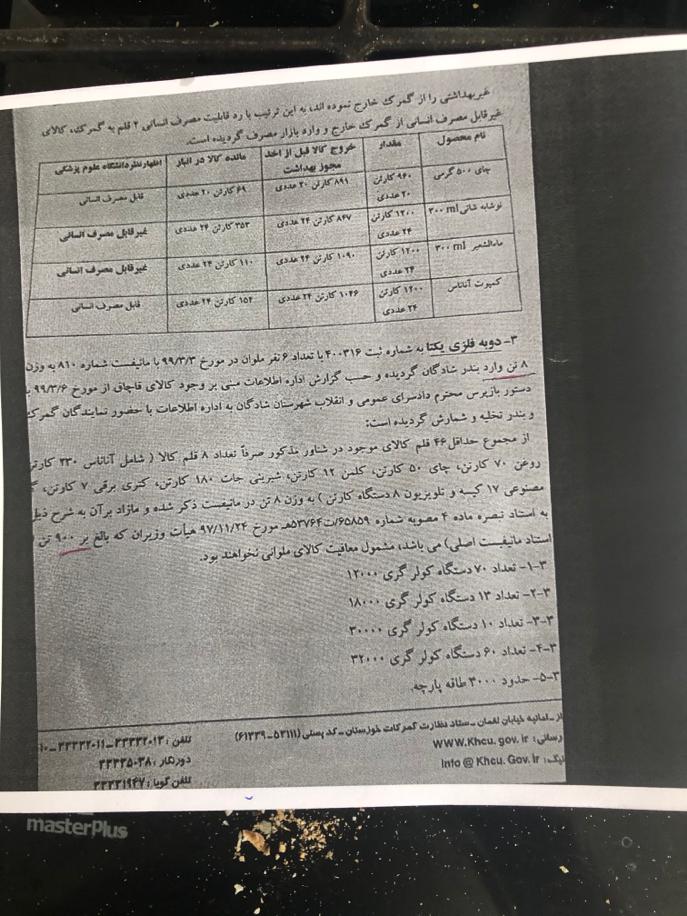 غیربهداشتی را از گمرک خارج نموده اند، به این ترتیب با رد قابلیت مصرف انسانی ۲ قلم به گمرک، کالای
غیرقابل مصرف انسانی از گمرک خارج و وارد بازار مصرف گردیده است.
نام محصول مقدار خروج کالا قبل از اخذ مجوز بهداشت مانده کالا در انبار اظهارنظر دانشگاه علوم پزشکی
چای ۵۰۰ گرمی ۹۶۰ کارتن ۲۰ عددی ۸۹۱ کارتن ۲۰ عددی ۶۹ کارتن ۲۰ عددی قابل مصرف انسانی
نوشابه شانی ۳۰۰ ml ۱۲۰۰ کارتن ۲۴ عددی ۸۴۷ کارتن ۲۴ عددی ۳۵۳ کارتن ۲۴ عددی غیرقابل مصرف انسانی
ماءالشعیر ۳۰۰ ml ۱۲۰۰ کارتن ۲۴ عددی ۱۰۹۰ کارتن ۲۴ عددی ۱۱۰ کارتن ۲۴ عددی غیرقابل مصرف انسانی
کمپوت آناناس ۱۲۰۰ کارتن ۲۴ عددی ۱۰۴۶ کارتن ۲۴ عددی ۱۵۴ کارتن ۲۴ عددی قابل مصرف انسانی
۳- دوبه فلزی یکتا به شماره ثبت ۴۰۰۳۱۶ با تعداد ۶ نفر ملوان در مورخ ۹۹/۳/۳ با مانیفست شماره ۸۱۰ به وزن
۸ تن وارد بندر شادگان گردیده و حسب گزارش اداره اطلاعات مبنی بر وجود کالای قاچاق از مورخ ۹۹/۳/۶
دستور بازپرس محترم دادسرای عمومی و انقلاب شهرستان شادگان به اداره اطلاعات با حضور نمایندگان گمرک
و بندر تخلیه و شمارش گردیده است:
از مجموع حداقل ۴۶ قلم کالای موجود در شناور مذکور صرفاً تعداد ۸ قلم کالا ( شامل آناناس ۳۳۰ کارتن
روغن ۷۰ کارتن، چای ۵۰ کارتن، کلمن ۱۲ کارتن، شیرینی جات ۱۸۰ کارتن، کتری برقی ۷ کارتن،
مصنوعی ۱۷ کیسه و تلویزیون ۸ دستگاه کارتن ) به وزن ۸ تن در مانیفست ذکر شده و مازاد بر آن به شرح ذیل
به استناد تبصره ماده ۴ مصوبه شماره ۶۵۸۵۹/ت۵۳۷۶۴هـ مورخ ۹۷/۱۱/۲۴ هیأت وزیران که بالغ بر ۹۰۰ تن
استاد مانیفیست اصلی) می باشد، مشمول معافیت کالای ملوانی نخواهند بود.
۳-۱- تعداد ۷۰ دستگاه کولر گری ۱۲۰۰۰
۳-۲- تعداد ۱۳ دستگاه کولر گری ۱۸۰۰۰
۳-۳- تعداد ۱۰ دستگاه کولر گری ۳۰۰۰۰
۳-۴- تعداد ۶۰ دستگاه کولر گری ۳۲۰۰۰
۳-۵- حدود ۳۰۰۰ طاقه پارچه.
از-امانیه خیابان لقمان-ستاد نظارت گمرکات خوزستان-کد پستی (۵۳۱۱۱-۶۱۳۳۹)
رسانی: WWW.Khcu.gov.ir
نیک: Info @ Khcu. Gov.Ir
تلفن: ۳۳۳۳۲۰۱۳-۳۳۳۳۲۰۱۱-۱۰
دورنگار: ۳۳۳۳۵۰۳۸
تلفن گویا: ۳۳۳۳۱۹۴۷
masterPlus